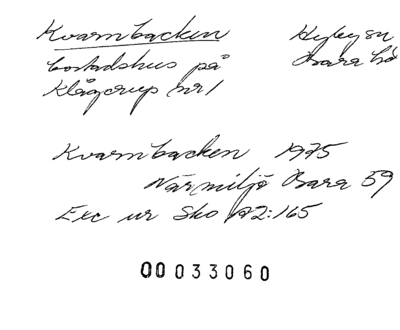 Kvarnbacken Hyby sn
bostadshus på Bara hd
Klågerup nr 1
Kvarnbacken 1975
Närmiljö Bara 59
Exc ur Sko A2:165
00033060